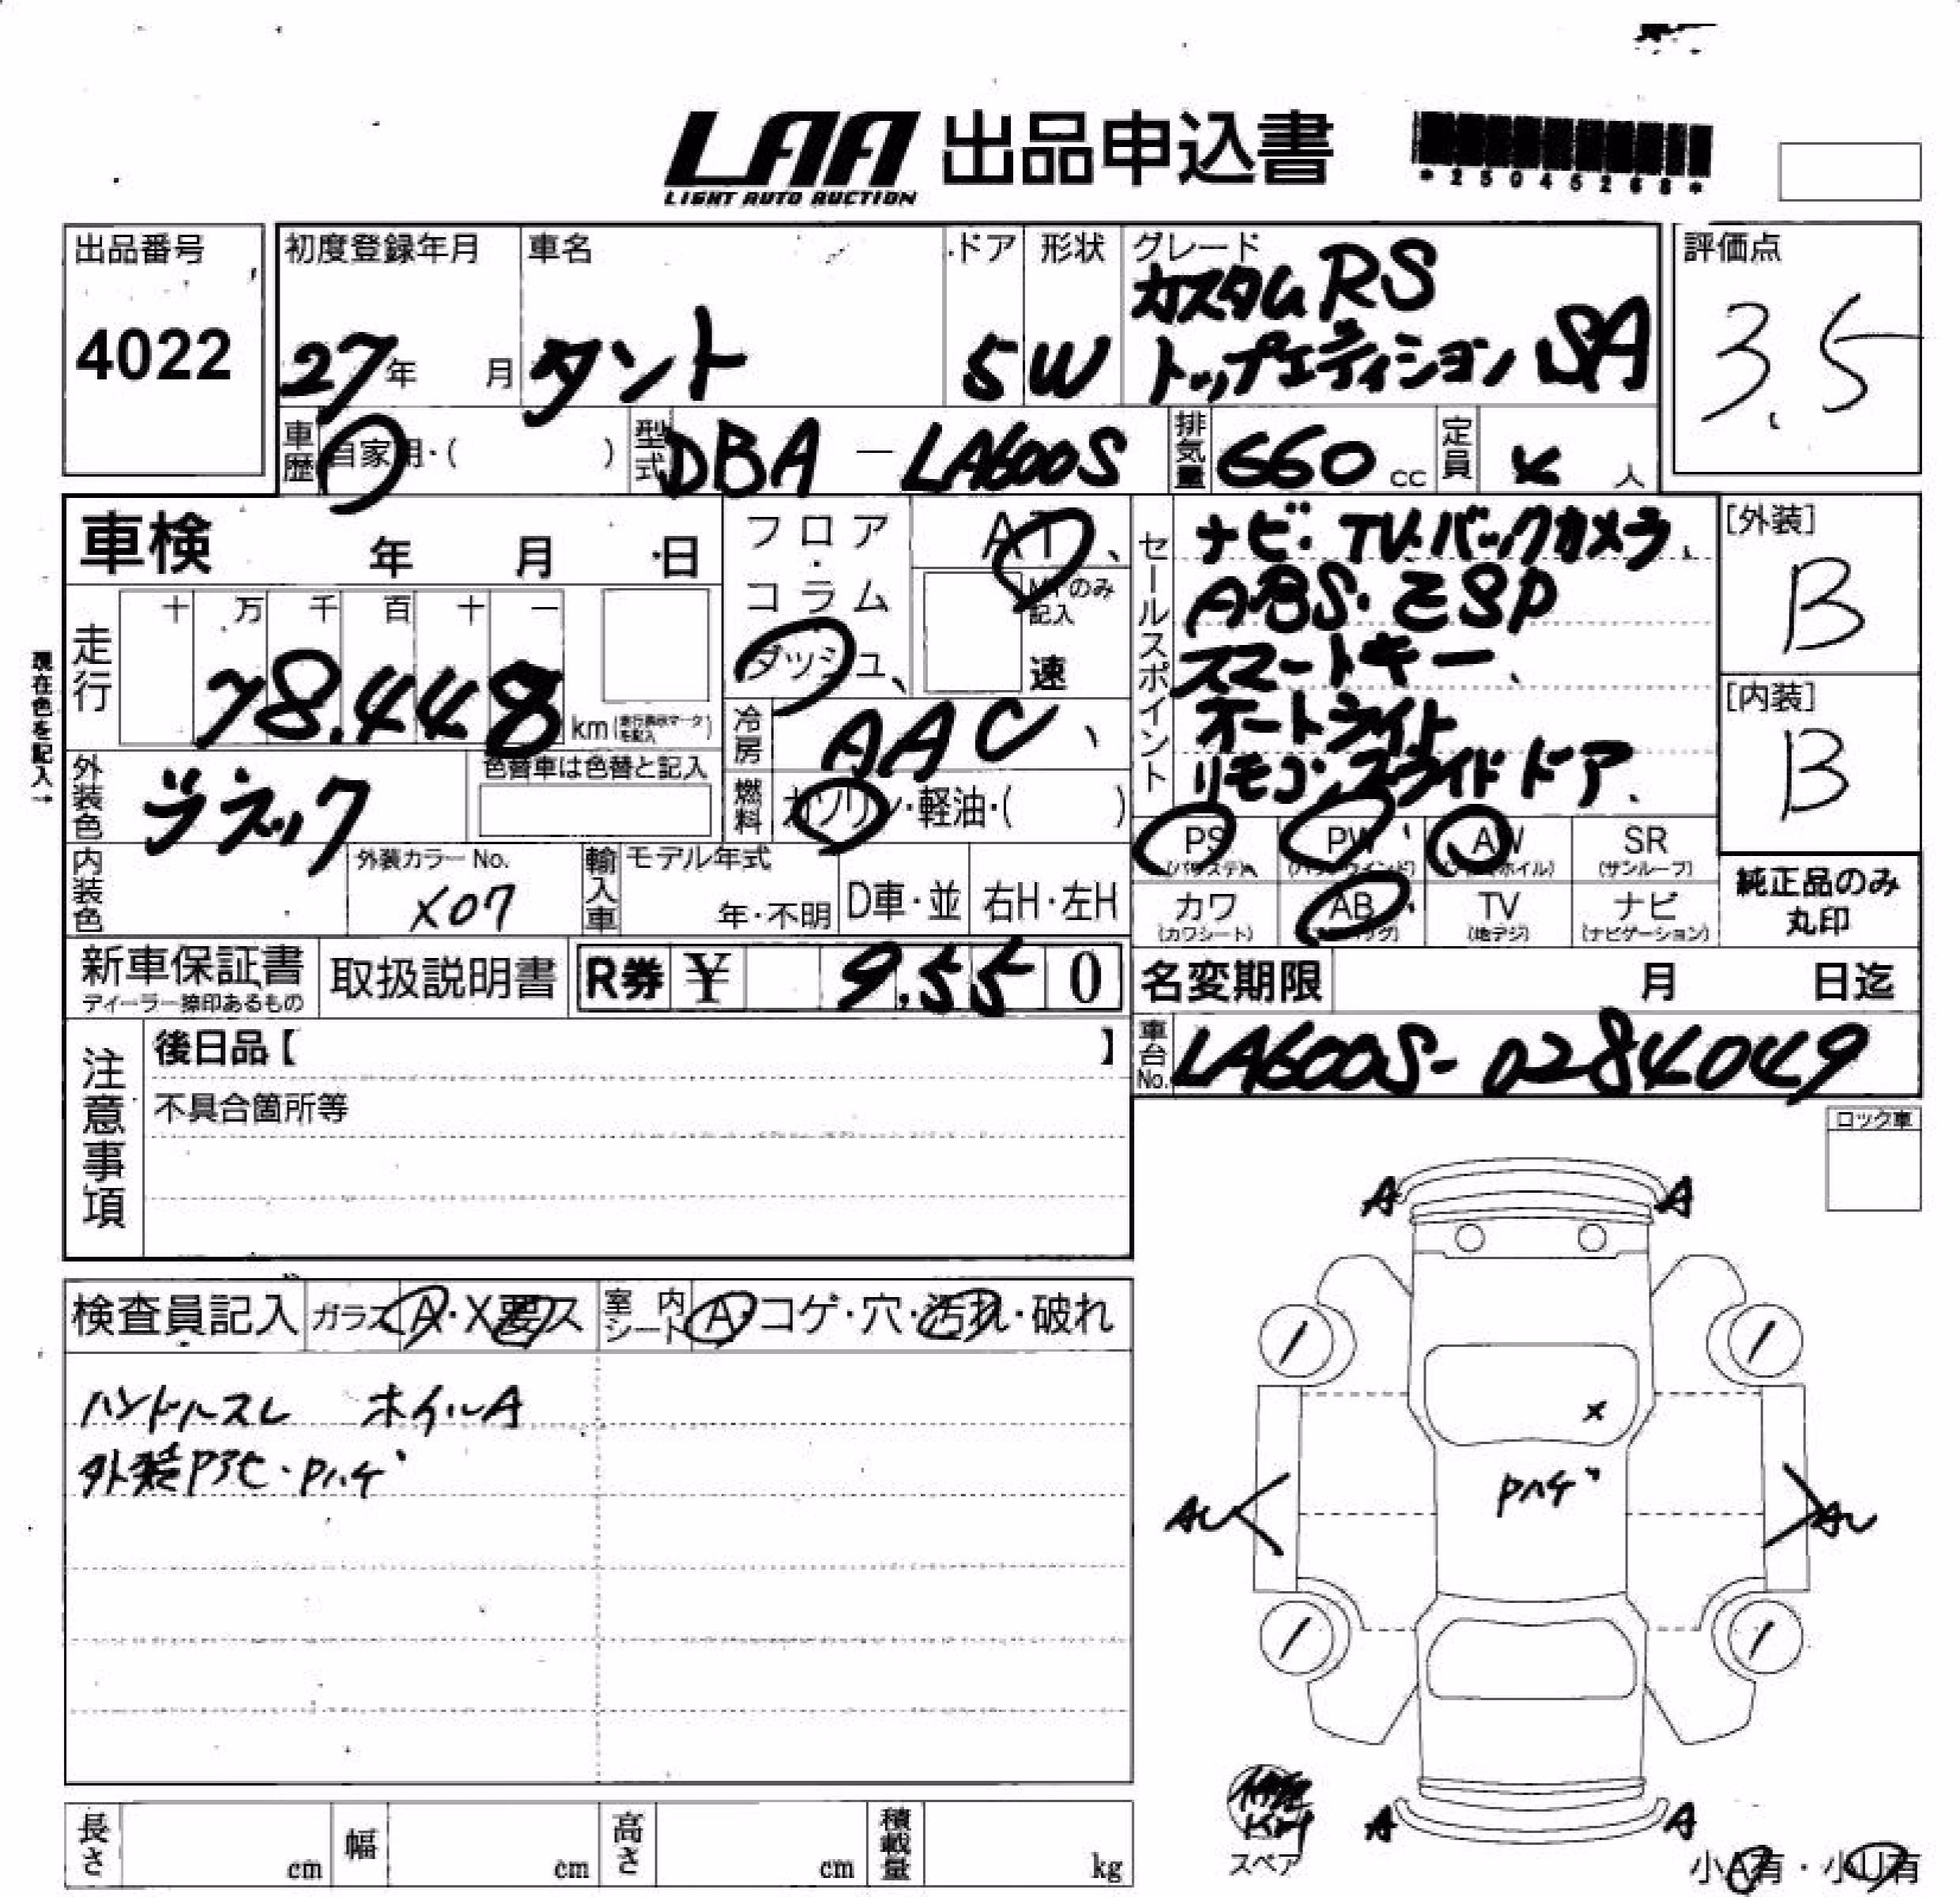 LAA 出品申込書
LIGHT AUTO AUCTION
*25045268*
出品番号
4022
初度登録年月
27年 月
車名
タント
ドア
5
形状
W
グレード
カスタムRS
トップエディションSA
評価点
3.5
車歴
自家用・( )
型式
DBA-LA600S
排気量
660 cc
定員
4 人
車検 年 月 日
現在色を記入→
走行
十 万 千 百 十 一
78.448
km(走行表示マークを記入)
フロア・コラム
ダッシュ
AT
MTのみ記入
速
冷房
AAC
燃料
ガソリン・軽油・( )
外装色
ブラック
色替車は色替と記入
内装色
外装カラーNo.
X07
輸入車
モデル年式
年・不明
D車・並
右H・左H
セールスポイント
ナビ・TV・バックカメラ
ABS・ESP
スマートキー
オートライト
リモコンスライドドア
[外装]
B
[内装]
B
PS
(パワステ)
PW
(パワーウインド)
AW
(アルミホイル)
SR
(サンルーフ)
カワ
(カワシート)
AB
(エアバッグ)
TV
(地デジ)
ナビ
(ナビゲーション)
純正品のみ
丸印
新車保証書
ディーラー捺印あるもの
取扱説明書
R券 ¥ 9,550
名変期限 月 日迄
車台No.
LA600S-0284049
注意事項
後日品【 】
不具合箇所等
ロック車
検査員記入
ガラス A・X要ス
室内シート A・コゲ・穴・汚れ・破れ
ハンドルスレ ホイルA
外装P劣化・Pハゲ
A A
x
Pハゲ
AU AU
A A
スペア
小A有・小U有
長さ cm
幅 cm
高さ cm
積載量 kg